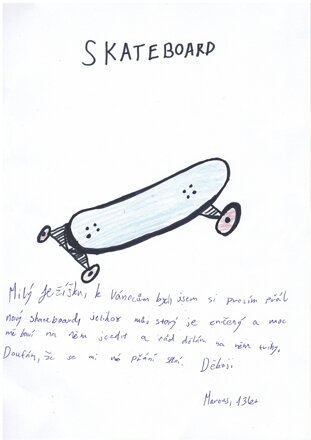 SKATEBOARD
Milý Ježíšku, k Vánocům bych jsem si prosím přál
nový skateboard, jelikož můj starý je zničený a moc
mě baví na něm jezdit a rád dělám na něm triky.
Doufám, že se mi mé přání splní. Děkuji.
Marcus, 13 let